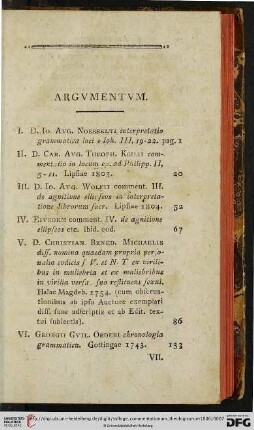 ARGVMENTVM.
I. D. Io. Avg. Noesselti interpretatio
grammatica loci 1 Ioh. III, 19-22. pag. 1
II. D. Car. Avg. Theoph. Keilii com-
mentatio in locum ep. ad Philipp. II,
5-11. Lipsiae 1803. 20
III. D. Io. Avg. Wolfii comment. III.
de agnitione ellipseos in interpreta-
tione librorum sacr. Lipsiae 1804. 52
IV. Eivsdem comment. IV. de agnitione
ellipseos etc. Ibid. eod. 67
V. D. Christian. Bened. Michaelis
diss. nomina quaedam propria perso-
nalia codicis s. V. et N. T. ex virili-
bus in muliebria et ex muliebribus
in virilia versa, suo restituens sexui.
Halae Magdeb. 1754. (cum obserua-
tionibus ab ipso Auctore exemplari
diss. suae adscriptis et ab Edit. tex-
tui subiectis). 86
VI. Georgii Gvil. Oederi chronologia
grammatica. Gottingae 1743. 133
VII.
UNIVERSITÄTS-
BIBLIOTHEK
HEIDELBERG
© Universitätsbibliothek Heidelberg
DFG